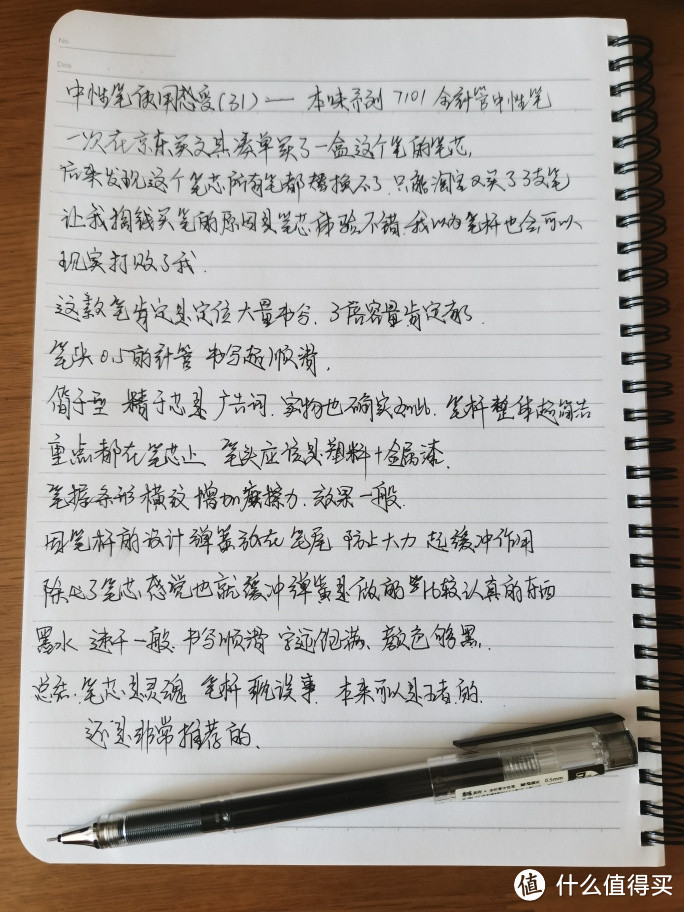 No.
Date
中性笔使用感受(31)— 本味系列 7101 全针管中性笔
一次在京东买文具凑单买了一盒这个笔的笔芯,
后来发现这个笔芯所有笔都替换不了.只能淘宝又买了3支笔
让我掏钱买笔的原因是笔芯体验不错.我以为笔杆也会可以
现实打败了我.
这款笔肯定是定位大量书写.3倍容量肯定有了.
笔头0.5的针管 书写起顺滑,
简于型 精于芯是广告词.实物也确实如此.笔杆整体起简洁
重点都在笔芯上 笔头应该是塑料+金属漆.
笔握条形横纹 增加摩擦力.效果一般.
因笔杆的设计弹簧放在笔尾 防止大力 起缓冲作用
除此了笔芯感觉也就缓冲弹簧是做的比较认真的东西
墨水 速干一般.书写顺滑 字迹饱满、颜色够黑.
总结.笔芯是灵魂 笔杆耽误事. 本来可以是王者的.
还是非常推荐的.
0.5mm
值 什么值得买